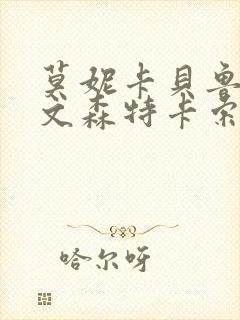 莫妮卡貝魯
文森特卡索
哈尔呀